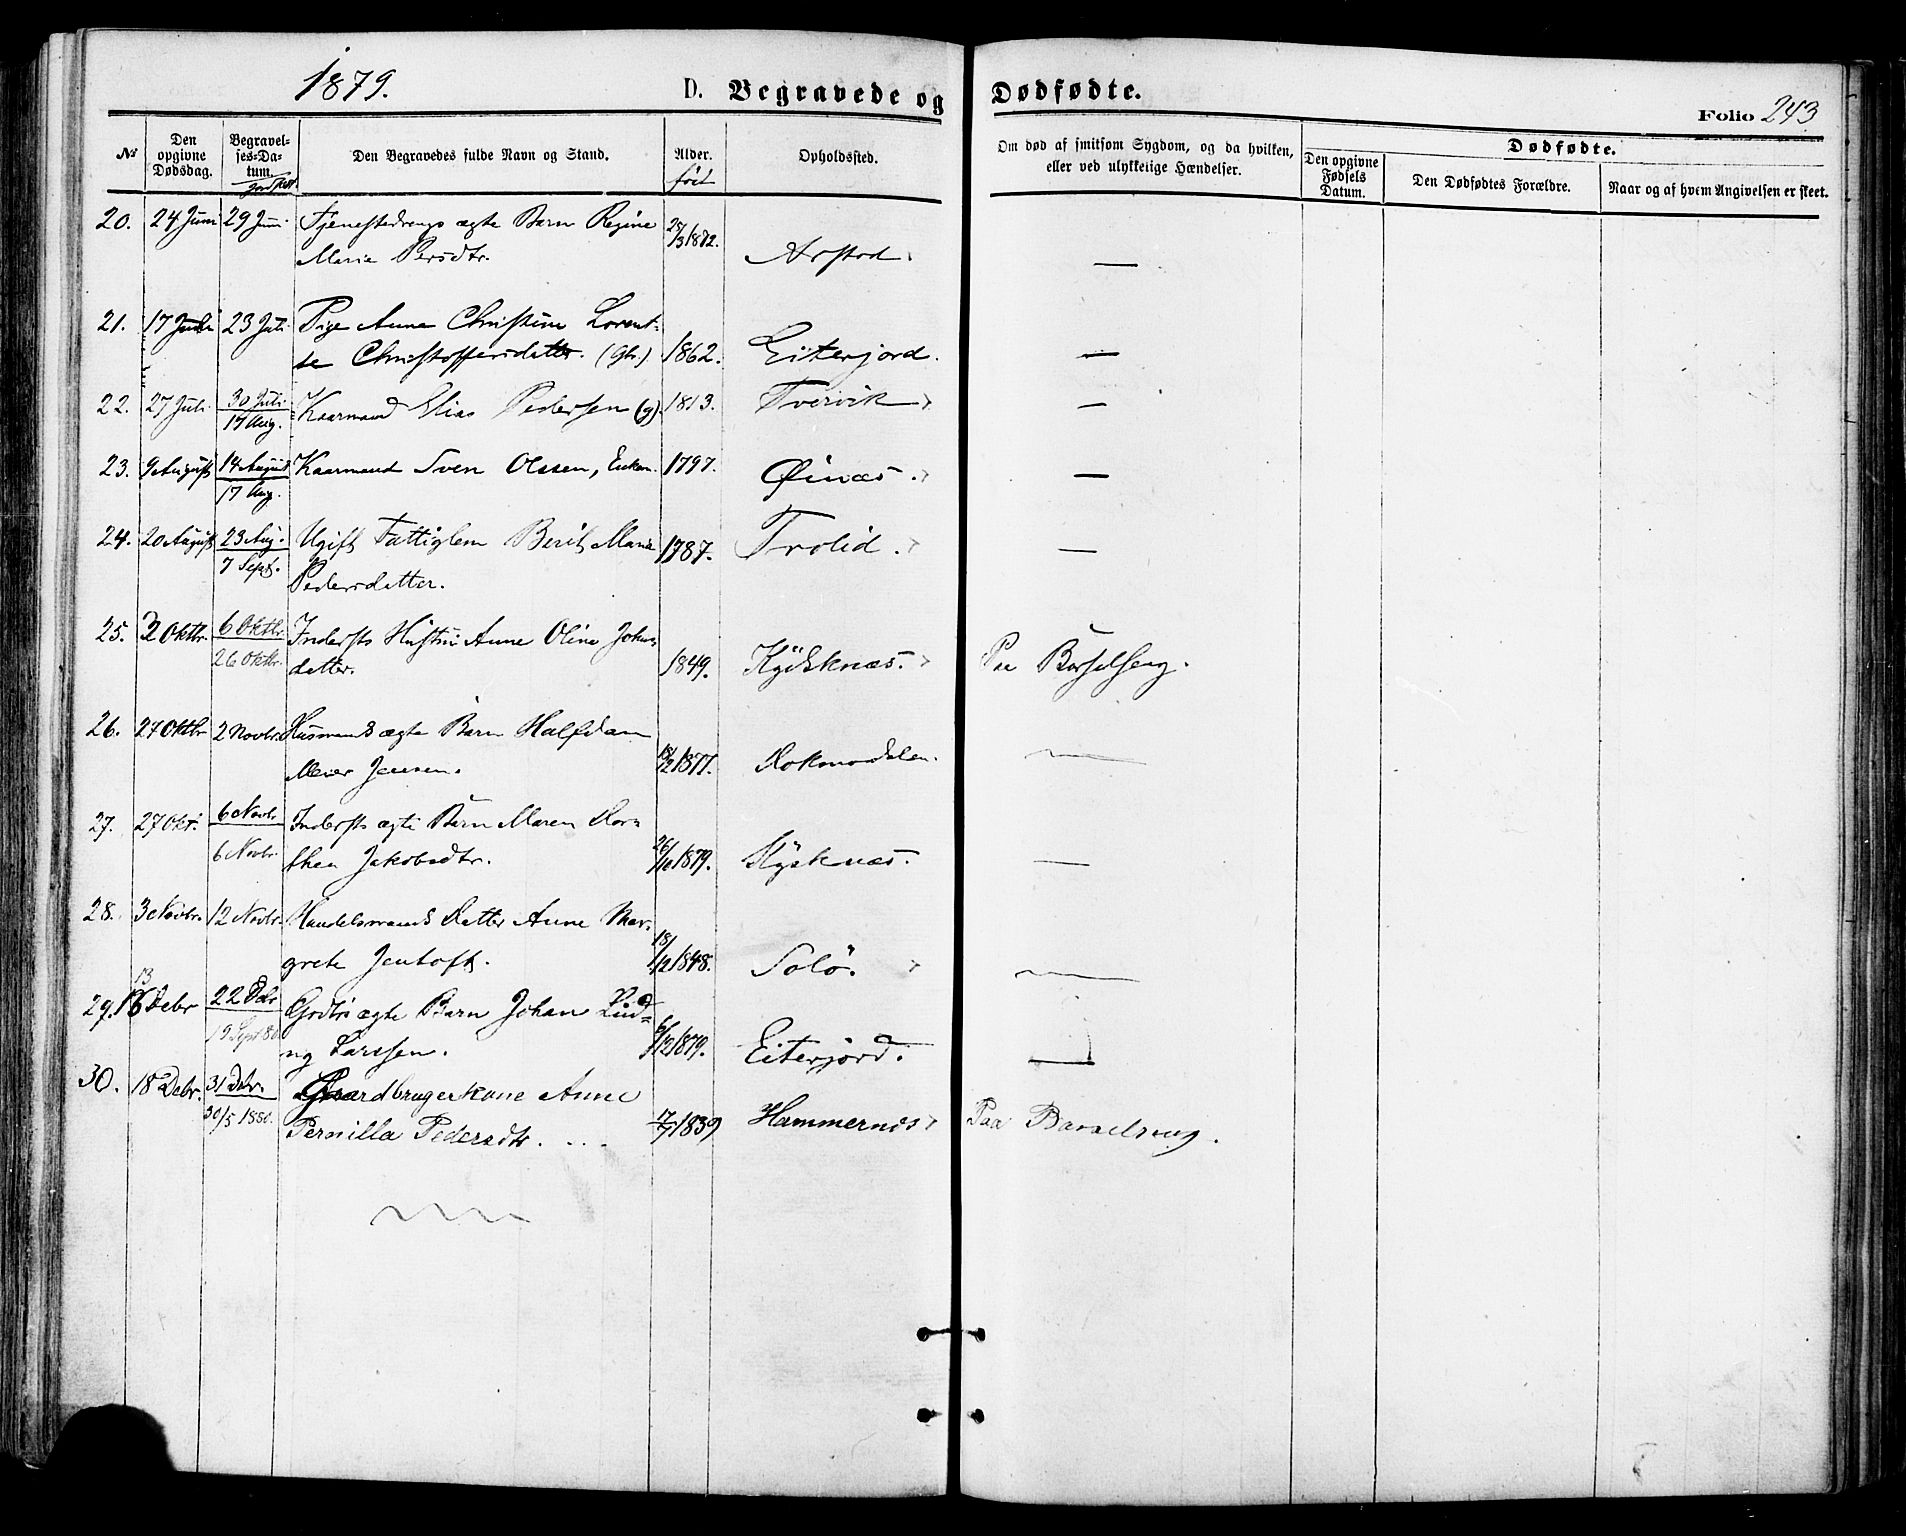 1879.
D. Begravede og Dødfødte.
Folio 243
№
Den opgivne Dødsdag.
Begravelses-Datum.
Den Begravedes fulde Navn og Stand.
Alder.
født
Opholdssted.
Om død af smitsom Sygdom, og da hvilken,
eller ved ulykkelige Hændelser.
Dødfødte.
Den opgivne Fødsels Datum.
Den Dødfødtes Forældre.
Naar og af hvem Angivelsen er skeet.
20. 24 Juni 29 Juni Tjenestedrengs ægte Barn Regine
Maria Persdtr. 1872. Arstad. —
21. 17 Juli 23 Juli Pige Anne Christine Lorent-
se Christoffersdatter. (gb.) 1862. Eiterjord. —
22. 27 Juli 30 Juli Kaarmand Elias Pedersen (g). 1813. Tvervik —
17 Aug.
23. 9 August 14 August Kaarmand Sven Olssen, Enkem. 1797. Øinæs. —
17 Aug.
24. 20 August 23 Aug. Ugift Fattiglem Berit Maria 1787. Trolid. —
7 Sept. Pedersdatter.
25. 2 Oktbr. 6 Oktbr. Indersts Hustru Anne Oline Johns
26 Oktbr. datter. 1849. Kjelsknæs. Paa Barselseng.
26. 27 Oktbr 2 Novbr. Husmands ægte Barn Halfdan
Meier Jensen. 18/2 1877. Dokmodalen. —
27. 27 Okt. 6 Novbr. Indersts ægte Barn Maren Dor-
6 Novbr. thea Jakobsdtr. 26/10 1879. —
28. 3 Novbr. 12 Novbr. Handelsmands Datter Anne Mar-
grete Jentoft. 18/12 1848. Solö. —
13
29. 16 Debr 22 Dbr ægte Barn Johan Lud-
19 Sept 80. vig Larssen. 6/12 1879. Eiterjord. —
30. 18 Debr. 31 Debr. Gaardbrugerkone Anne
30/5 1880. Pernilla Pedersdtr. 17/7 1839 Hammernes Paa Barselseng.